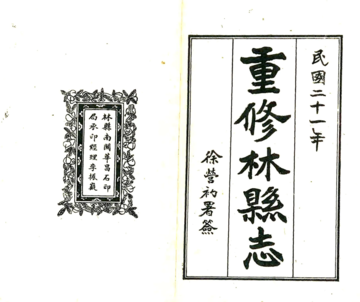 民國二十一年
重修林縣志
徐營初署簽
林縣南關華昌石印
局承印經理李振嶽